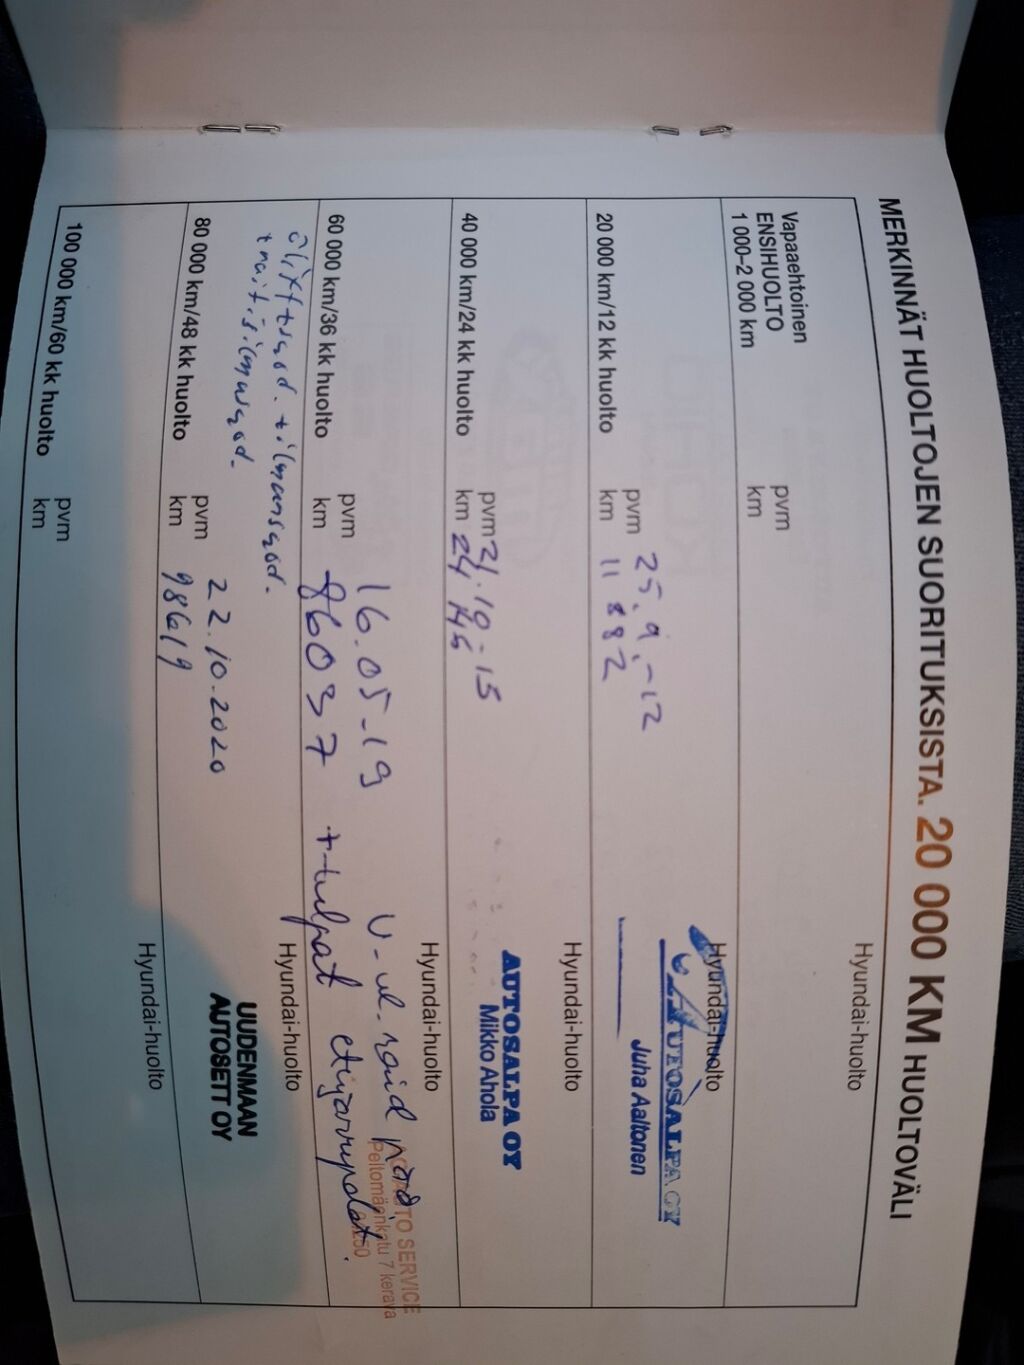 MERKINNÄT HUOLTOJEN SUORITUKSISTA. 20 000 KM HUOLTOVÄLI
Vapaaehtoinen
ENSIHUOLTO
1 000–2 000 km
pvm
km
Hyundai-huolto
20 000 km/12 kk huolto
pvm 25.9.-12
km 11 882
Hyundai-huolto
AUTOSALPA OY
Juha Aaltonen
40 000 km/24 kk huolto
pvm 21.10-15
km 24 145
Hyundai-huolto
AUTOSALPA OY
Mikko Ahola
60 000 km/36 kk huolto
pvm 16.05-19
km 86037 + tulpat etujarrupalat.
Hyundai-huolto
TO SERVICE
Peltomäenkatu 7 kerava
80 000 km/48 kk huolto
pvm 22.10.2020
km 98619
Hyundai-huolto
UUDENMAAN
AUTOSETT OY
100 000 km/60 kk huolto
pvm
km
Hyundai-huolto